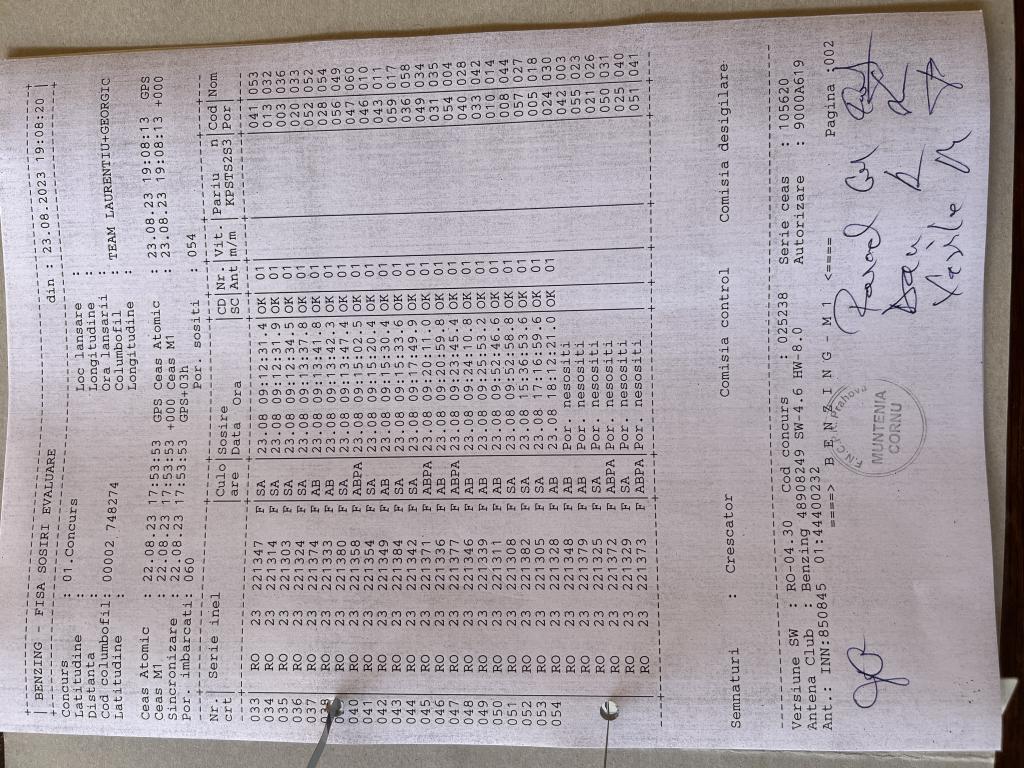 BENZING - FISA SOSIRI EVALUARE din : 23.08.2023 19:08:20
Concurs : 01.Concurs Loc lansare :
Latitudine : Longitudine :
Distanta : Ora lansarii :
Cod columbofil: 00002 748274 Columbofil : TEAM LAURENTIU+GEORGIC
Latitudine : Longitudine :
Ceas Atomic : 22.08.23 17:53:53 GPS Ceas Atomic : 23.08.23 19:08:13 GPS
Ceas M1 : 22.08.23 17:53:53 +000 Ceas M1 : 23.08.23 19:08:13 +000
Sincronizare : 22.08.23 17:53:53 GPS+03h
Por. imbarcati: 060 Por. sositi : 054
Nr. Serie inel Culo Sosire CD Nr. Vit. Pariu n Cod Nom
crt are Data Ora SC Ant m/m KPSTS2S3 Por
033 RO 23 221347 F SA 23.08 09:12:31.4 OK 01 041 053
034 RO 23 221314 F SA 23.08 09:12:31.9 OK 01 013 032
035 RO 23 221303 F SA 23.08 09:12:34.5 OK 01 003 036
036 RO 23 221324 F SA 23.08 09:13:37.8 OK 01 020 033
037 RO 23 221374 F AB 23.08 09:13:41.8 OK 01 050 052
038 RO 23 221333 F AB 23.08 09:13:42.3 OK 01 028 054
RO 23 221380 F SA 23.08 09:13:47.4 OK 01 056 049
040 RO 23 221358 F ABPA 23.08 09:15:02.5 OK 01 047 060
041 RO 23 221354 F SA 23.08 09:15:20.4 OK 01 046 010
042 RO 23 221349 F AB 23.08 09:15:30.4 OK 01 043 011
043 RO 23 221384 F SA 23.08 09:15:33.6 OK 01 059 017
044 RO 23 221342 F SA 23.08 09:17:49.9 OK 01 036 058
045 RO 23 221371 F ABPA 23.08 09:20:11.0 OK 01 049 034
046 RO 23 221336 F AB 23.08 09:20:59.8 OK 01 031 035
047 RO 23 221377 F ABPA 23.08 09:23:45.4 OK 01 054 004
048 RO 23 221346 F AB 23.08 09:24:10.8 OK 01 040 028
049 RO 23 221339 F AB 23.08 09:25:53.2 OK 01 033 042
050 RO 23 221311 F AB 23.08 09:52:46.6 OK 01 010 014
051 RO 23 221308 F SA 23.08 09:52:58.8 OK 01 008 044
052 RO 23 221382 F SA 23.08 15:36:53.6 OK 01 057 027
053 RO 23 221305 F SA 23.08 17:16:59.6 OK 01 005 018
054 RO 23 221328 F AB 23.08 18:12:21.0 OK 01 024 030
RO 23 221348 F AB Por. nesositi 042 003
RO 23 221379 F AB Por. nesositi 055 023
RO 23 221325 F SA Por. nesositi 021 026
RO 23 221372 F ABPA Por. nesositi 050 031
RO 23 221329 F SA Por. nesositi 025 040
RO 23 221373 F ABPA Por. nesositi 051 041
Semnaturi : Crescator Comisia control Comisia desigilare
Versiune SW : RO-04.30 Cod concurs : 025238 Serie ceas : 105620
Antena Club : Benzing 48908249 SW-4.6 HW-8.0 Autorizare : 9000A619
Ant.: INN:850845 01:44400232
====> B E N Z I N G - M 1 <==== Pagina :002
F.N.C.P.R. Prahova
MUNTENIA
CORNU